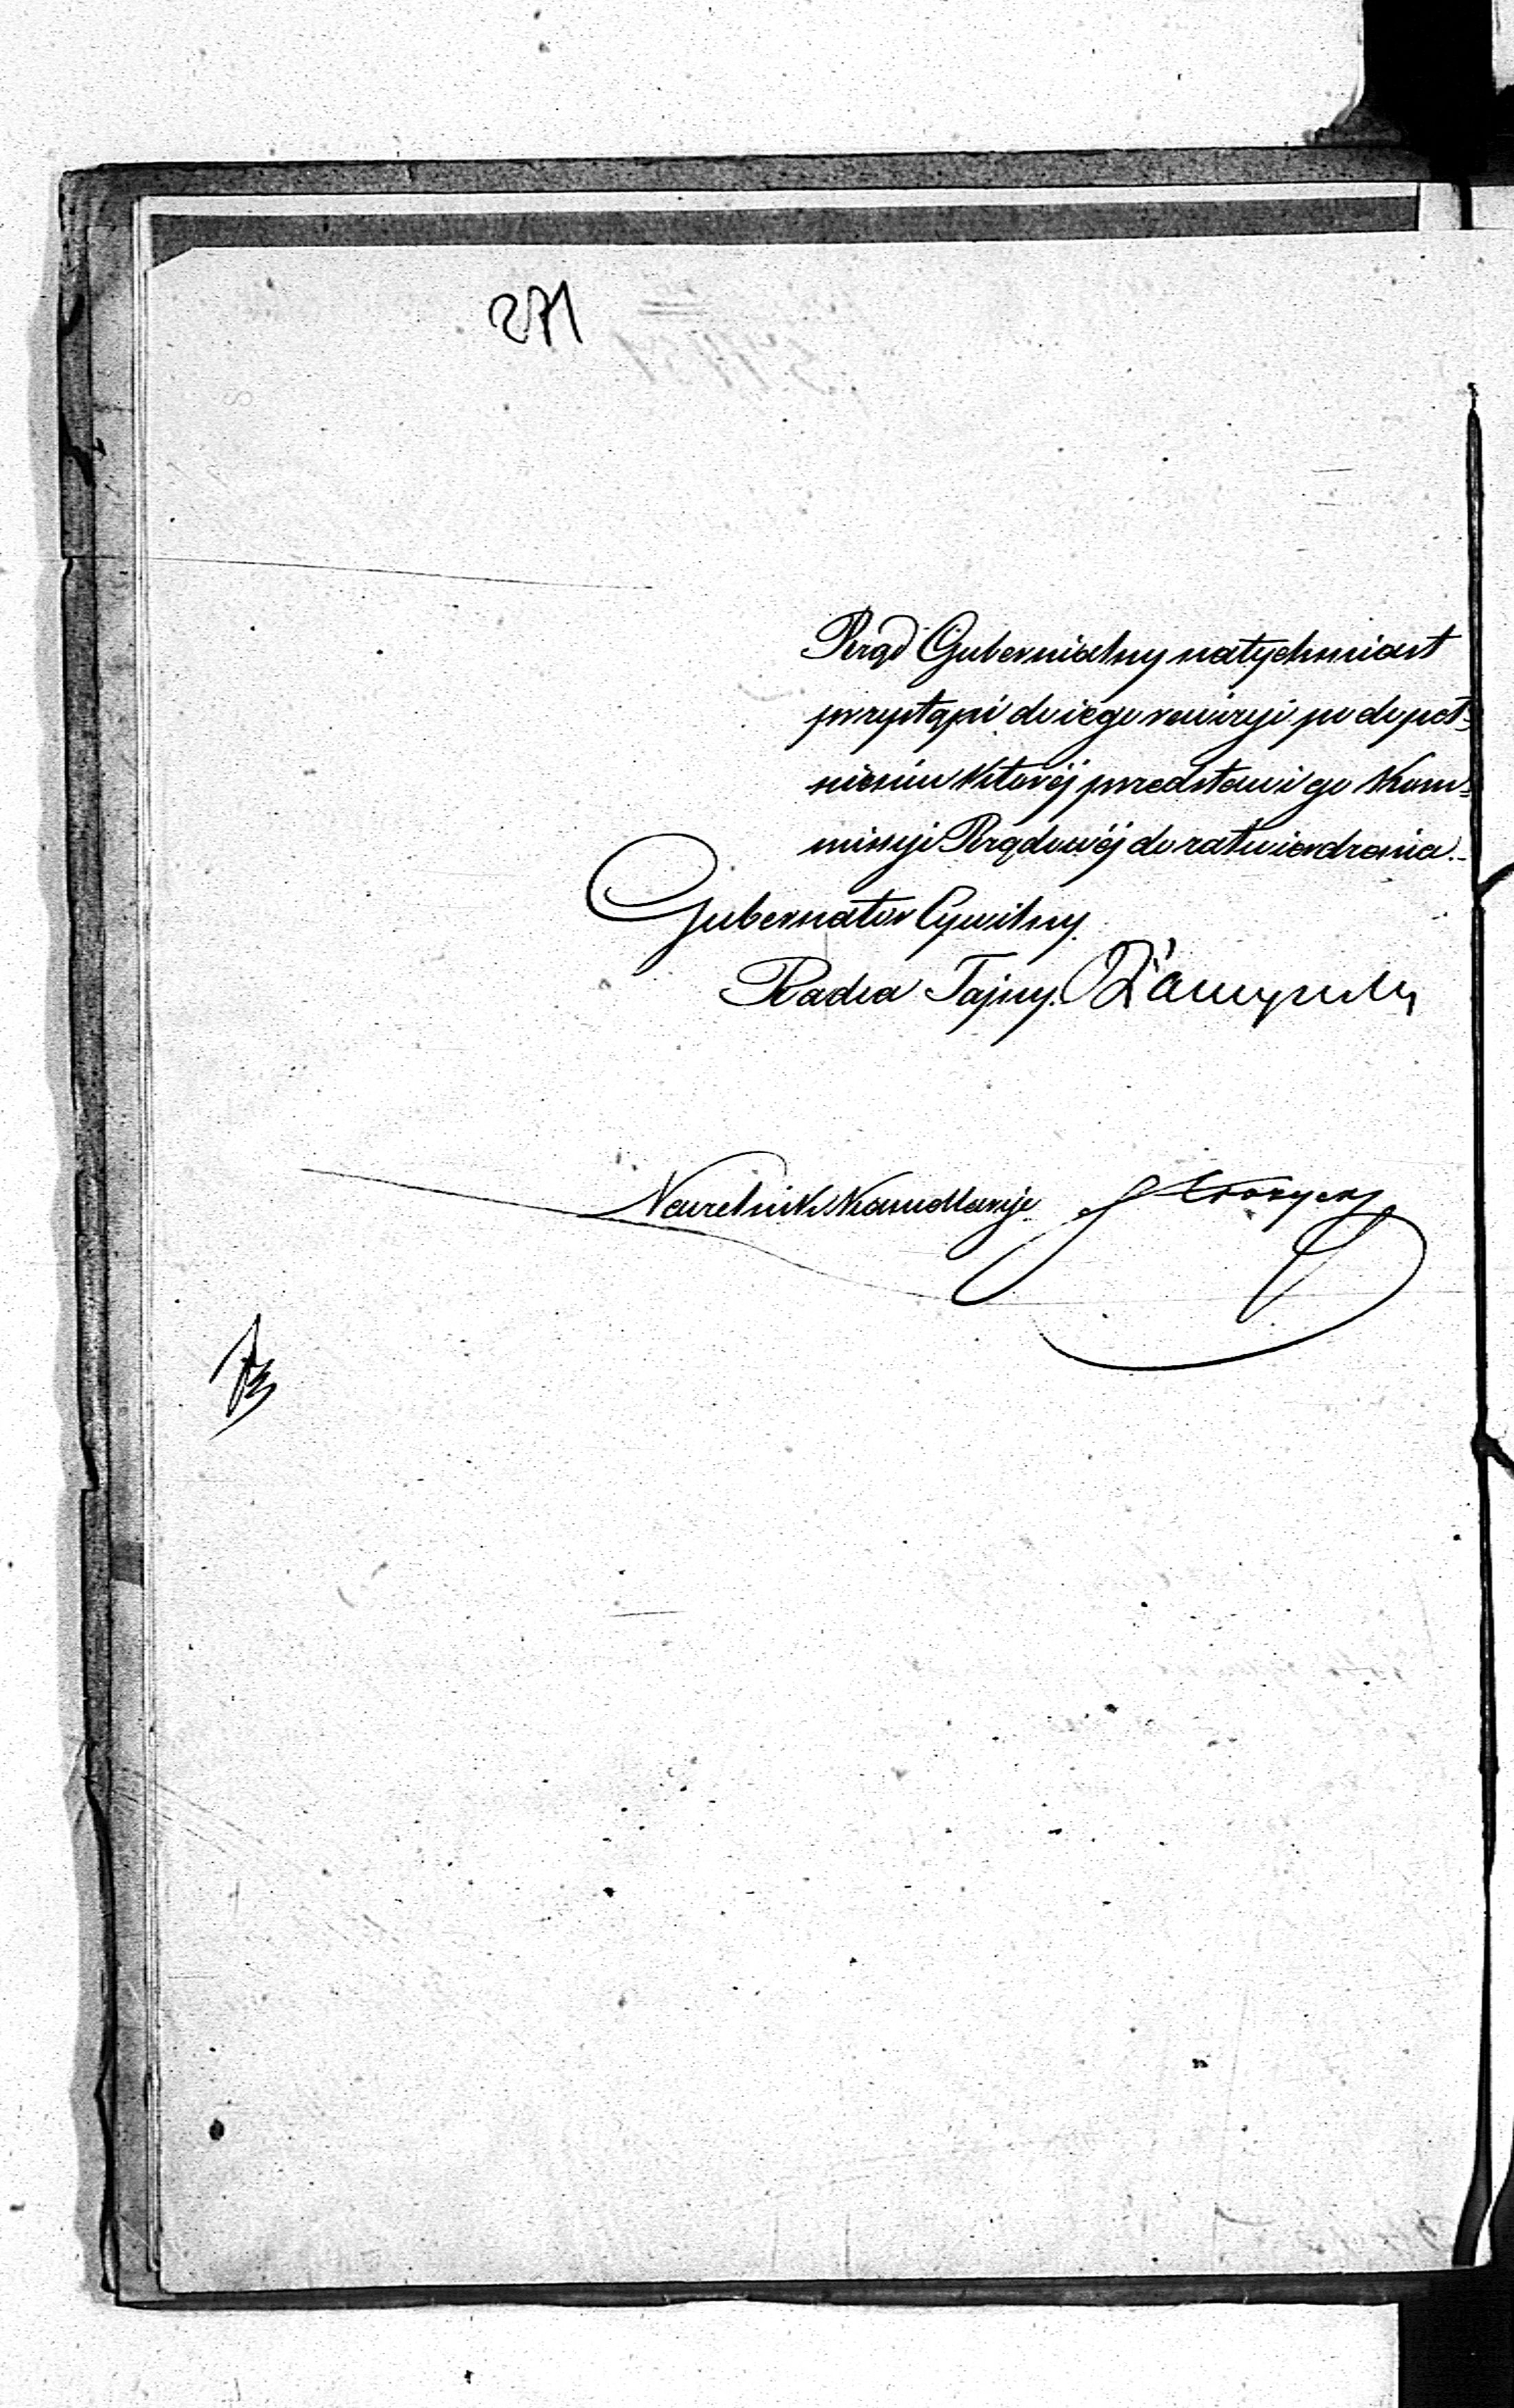 271
Rząd Gubernialny natychmiast
przystąpi do iego rewizyi po dopeł=
nieniu którój przedstawi go Kom=
missyi Rządowéj do zatwierdzenia.-
Gubernator Cywilny.
Radca Tajny.
Naczelnik Kancellaryi